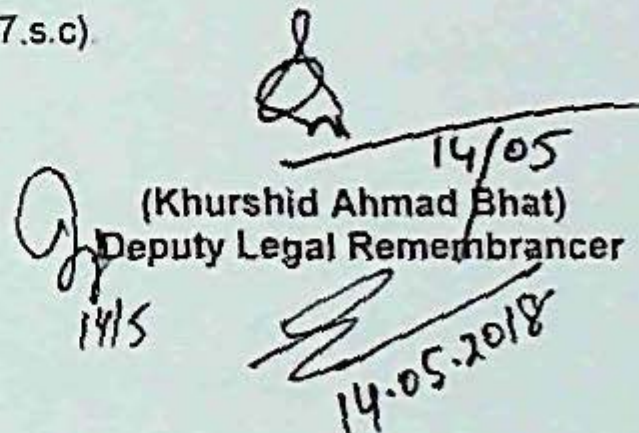 7.s.c)
14/05
(Khurshid Ahmad Bhat)
Deputy Legal Remembrancer
14/5
14.05.2018